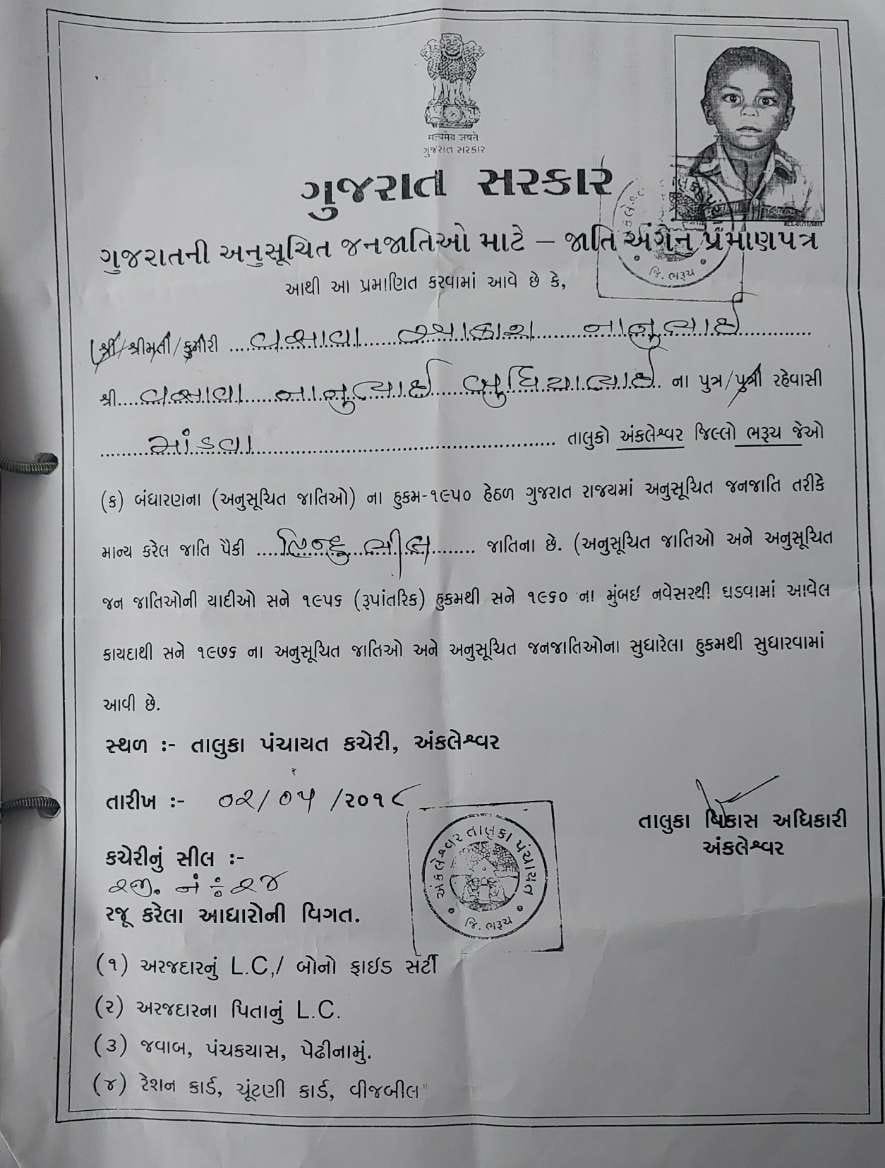 सत्यमेव जयते
ગુજરાત સરકાર
ગુજરાત સરકાર
ગુજરાતની અનુસૂચિત જનજાતિઓ માટે – જાતિ અંગેનું પ્રમાણપત્ર
જિ. ભરૂચ
આથી આ પ્રમાણિત કરવામાં આવે છે કે,
શ્રી/શ્રીમતી/કુમારી વસાવા આકાશ નાનુભાઈ
શ્રી વસાવા નાનુભાઈ બુધિયાભાઈ ના પુત્ર/પુત્રી રહેવાસી
માંડવા તાલુકો અંકલેશ્વર જિલ્લો ભરૂચ જેઓ
(ક) બંધારણના (અનુસૂચિત જાતિઓ) ના હુકમ-૧૯૫૦ હેઠળ ગુજરાત રાજ્યમાં અનુસૂચિત જનજાતિ તરીકે
માન્ય કરેલ જાતિ પૈકી હિન્દુ ભીલ જાતિના છે. (અનુસૂચિત જાતિઓ અને અનુસૂચિત
જન જાતિઓની યાદીઓ સને ૧૯૫૬ (રૂપાંતરિક) હુકમથી સને ૧૯૬૦ ના મુંબઈ નવેસરથી ઘડવામાં આવેલ
કાયદાથી સને ૧૯૭૬ ના અનુસૂચિત જાતિઓ અને અનુસૂચિત જનજાતિઓના સુધારેલા હુકમથી સુધારવામાં
આવી છે.
સ્થળ :- તાલુકા પંચાયત કચેરી, અંકલેશ્વર
તારીખ :- ૦૨/૦૫/૨૦૧૮
તાલુકા વિકાસ અધિકારી
અંકલેશ્વર
કચેરીનું સીલ :-
અંકલેશ્વર તાલુકા પંચાયત
જિ. ભરૂચ
રજી. નં ÷ ૨૪
રજૂ કરેલા આધારોની વિગત.
(૧) અરજદારનું L.C,/ બોનો ફાઈડ સર્ટી
(૨) અરજદારના પિતાનું L.C.
(૩) જવાબ, પંચકયાસ, પેઢીનામું.
(૪) રેશન કાર્ડ, ચૂંટણી કાર્ડ, વીજબીલ